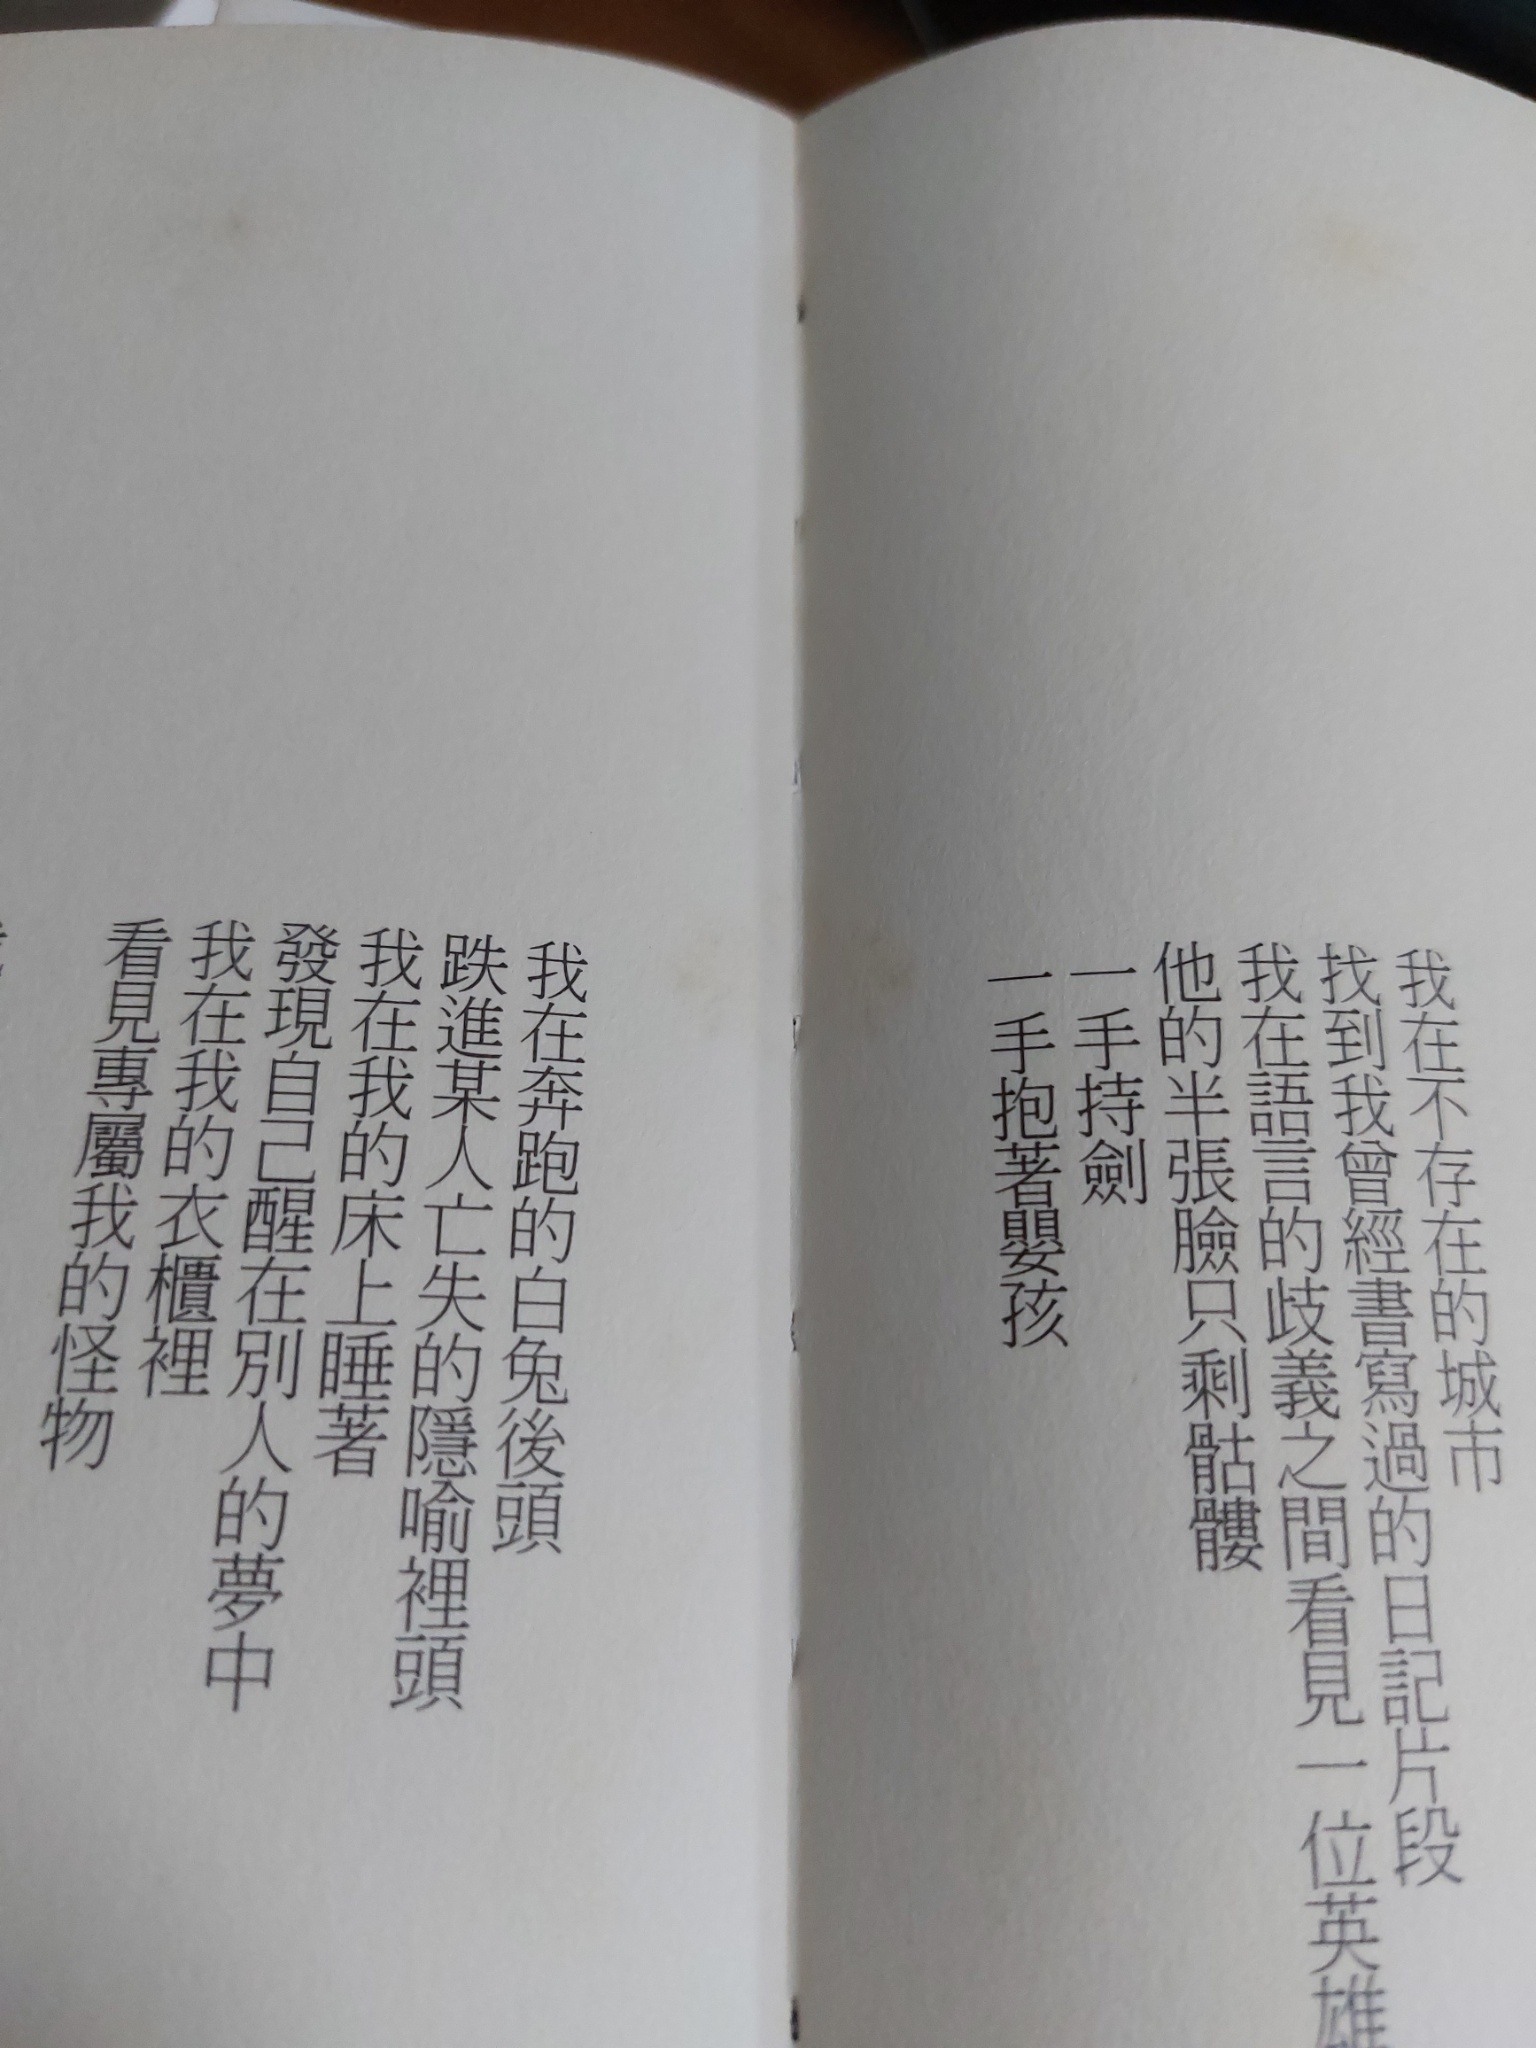 我在不存在的城市
找到我曾經書寫過的日記片段
我在語言的歧義之間看見一位英雄
他的半張臉只剩骷髏
一手持劍
一手抱著嬰孩
我在奔跑的白兔後頭
跌進某人亡失的隱喻裡頭
我在我的床上睡著
發現自己醒在別人的夢中
我在我的衣櫃裡
看見專屬我的怪物